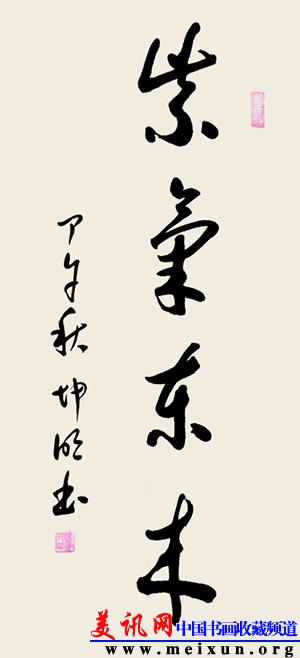 紫氣東来
甲午秋坤明书
美讯网
中国书画收藏频道
www.meixun.org